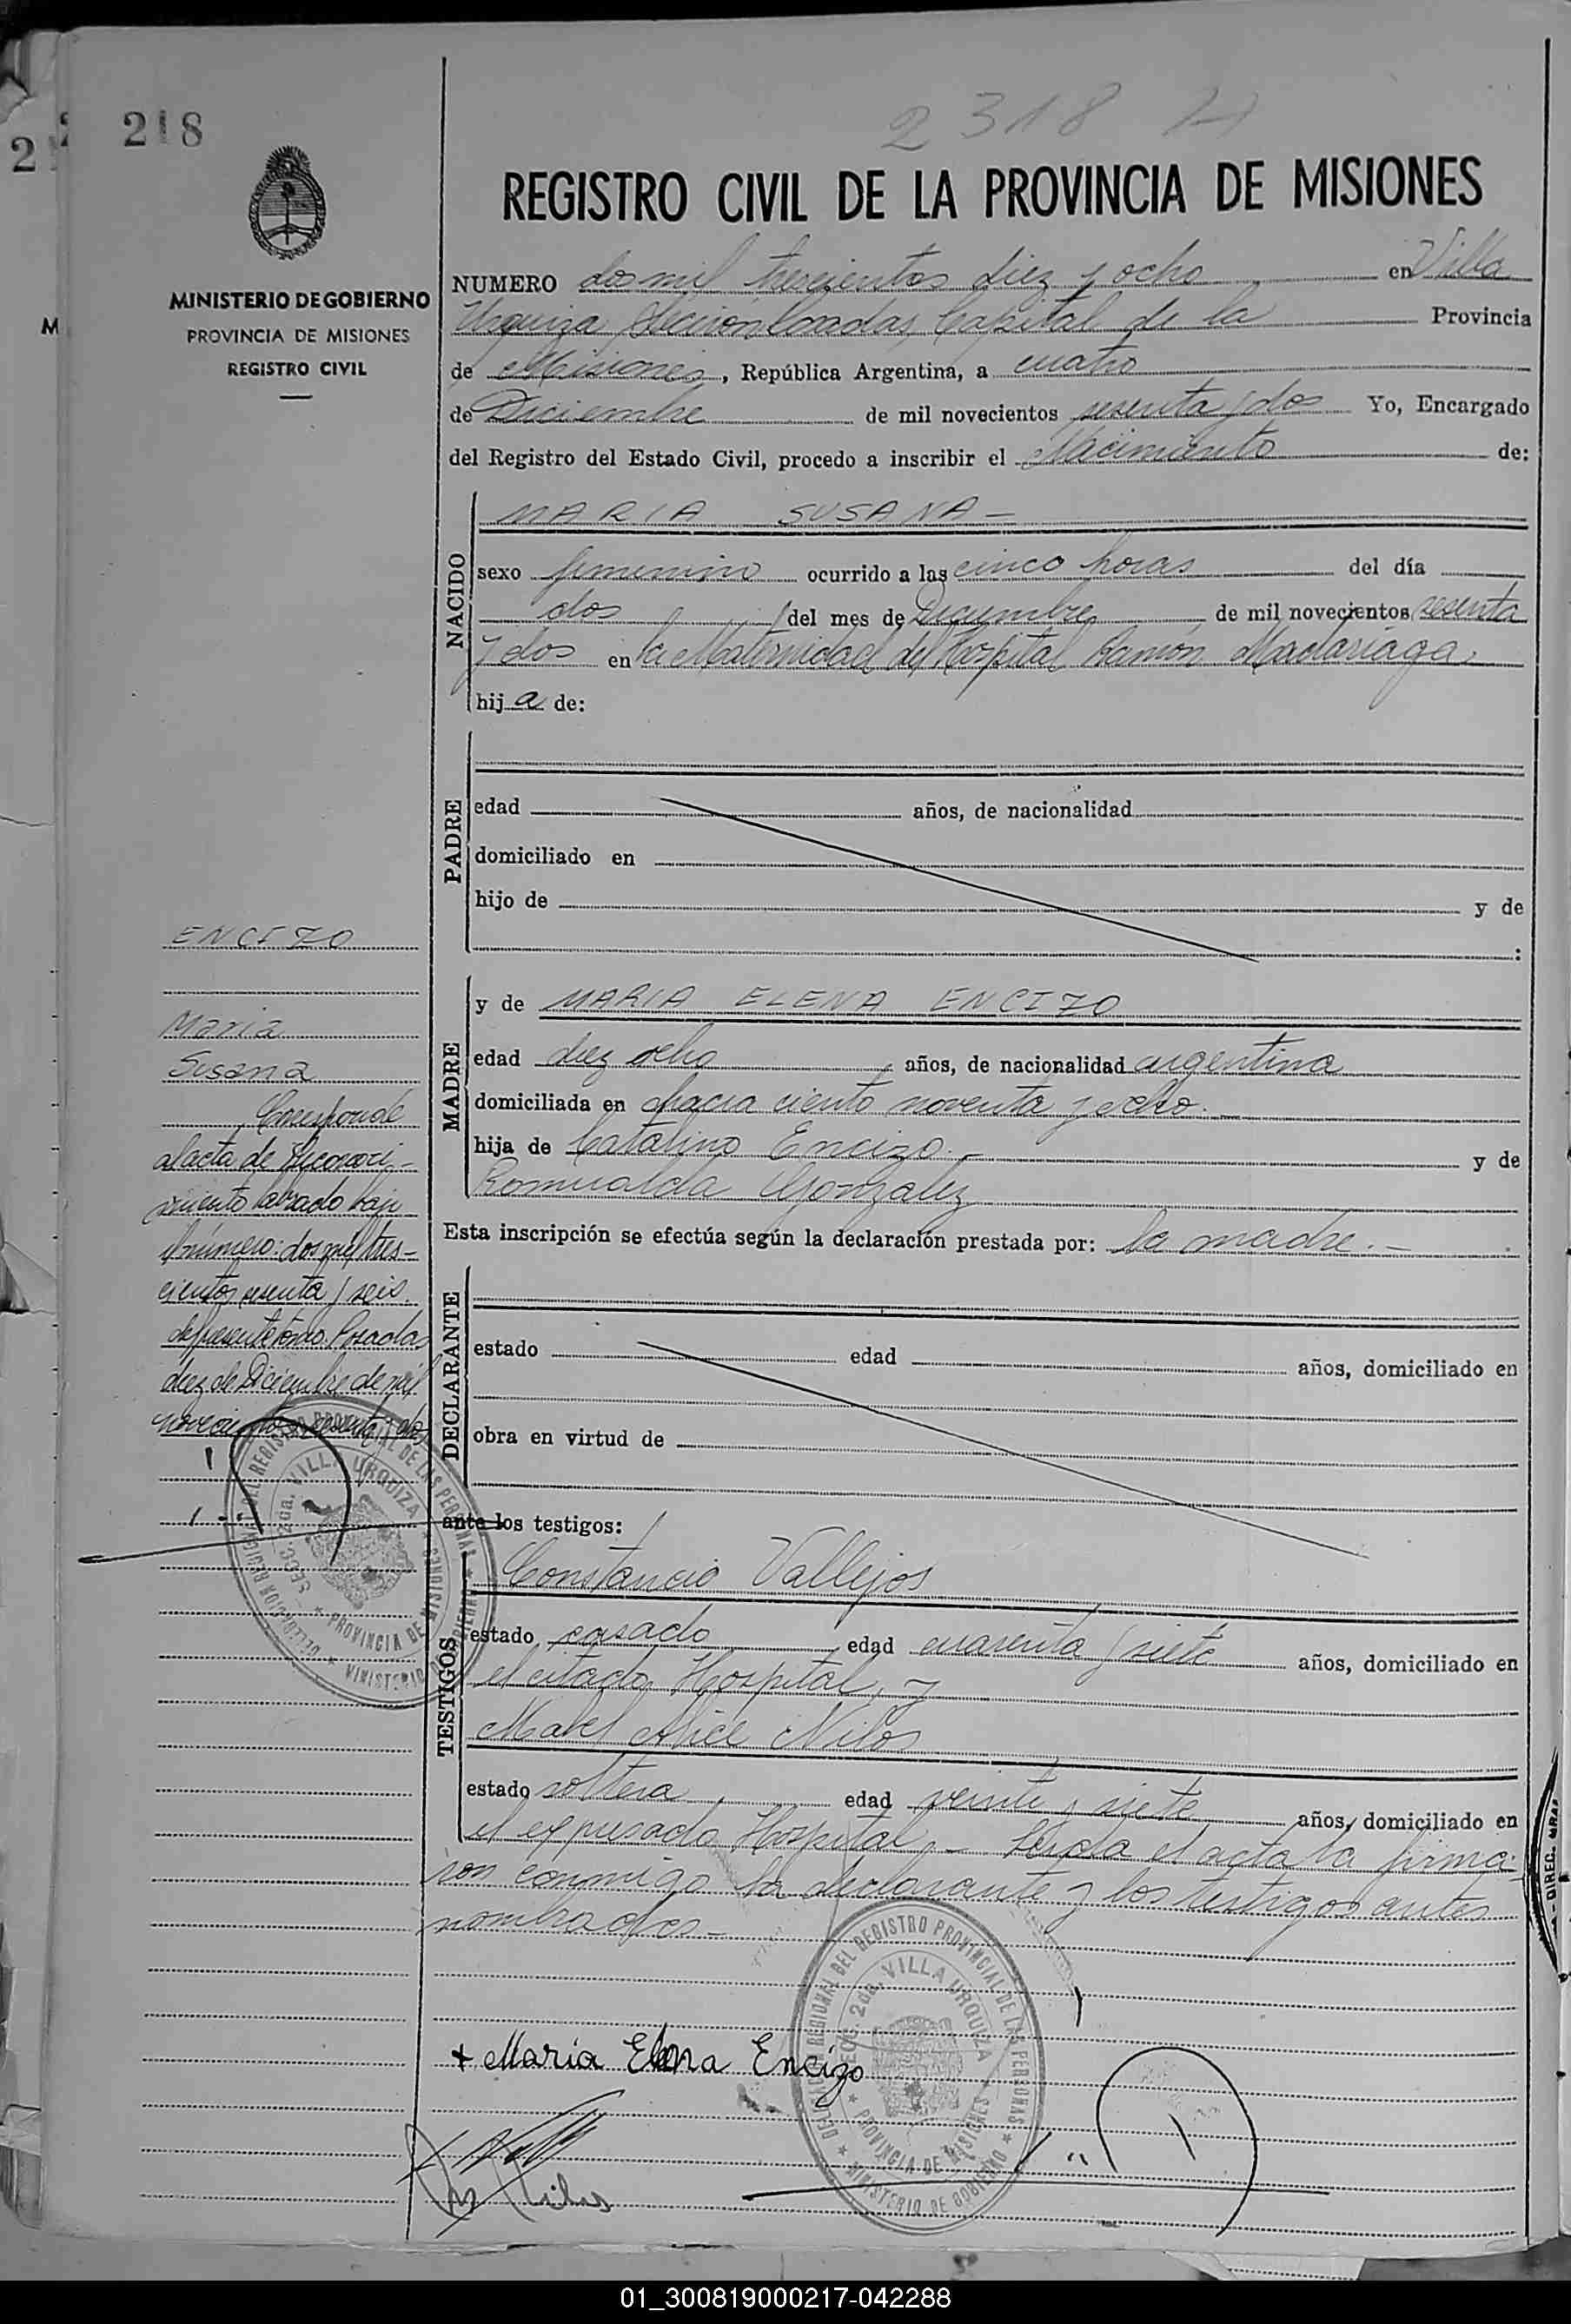 218
2318 H
REGISTRO CIVIL DE LA PROVINCIA DE MISIONES
MINISTERIO DE GOBIERNO
PROVINCIA DE MISIONES
REGISTRO CIVIL
NUMERO dos mil trescientos diez y ocho en Villa
Urquiza Sección Posadas, Capital de la Provincia
de Misiones, República Argentina, a cuatro
de Diciembre de mil novecientos sesenta y dos Yo, Encargado
del Registro del Estado Civil, procedo a inscribir el Nacimiento de:
NACIDO
MARIA SUSANA-
sexo femenino ocurrido a las cinco horas del día
dos del mes de Diciembre de mil novecientos sesenta
y dos en la Maternidad del Hospital Ramón Madariaga
hija de:
PADRE
edad años, de nacionalidad
domiciliado en
hijo de y de
:
MADRE
y de MARIA ELENA ENCIZO
edad diez ocho años, de nacionalidad argentina
domiciliada en chacra ciento noventa y ocho.-
hija de Catalino Encizo.- y de
Romualda Gonzalez
Esta inscripción se efectúa según la declaración prestada por: la madre.-
DECLARANTE
estado edad años, domiciliado en
obra en virtud de
ante los testigos:
TESTIGOS
Constancio Vallejos
estado casado edad cuarenta y siete años, domiciliado en
el citado Hospital, y
Mabel Alice Nilos
estado soltera edad veinte y siete años, domiciliado en
el expresado Hospital.- Leída el acta la firma-
ron conmigo la declarante y los testigos antes
nombrados.-
ENCIZO
Maria
Susana
Corresponde
al acta de reconoci-
miento labrado bajo
el número: dos mil tres-
cientos sesenta y seis
del presente tomo. Posadas
diez de Diciembre de mil
novecientos sesenta y dos
DELEGACION REGIONAL DEL REGISTRO PROVINCIAL DE LAS PERSONAS
SECC. 2da. VILLA URQUIZA
PROVINCIA DE MISIONES
MINISTERIO DE GOBIERNO
+ Maria Elena Encizo
DELEGACION REGIONAL DEL REGISTRO PROVINCIAL DE LAS PERSONAS
SECC. 2da. VILLA URQUIZA
PROVINCIA DE MISIONES
MINISTERIO DE GOBIERNO
01_300819000217-042288